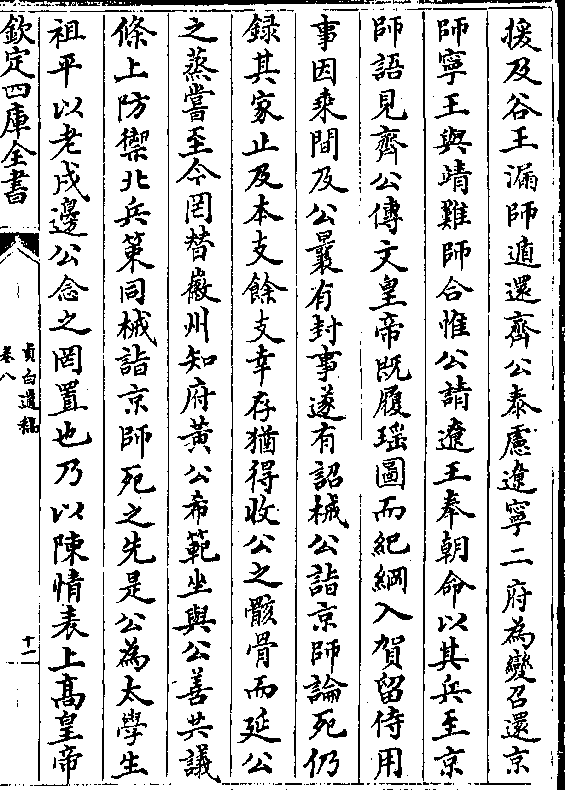 援及谷王漏師遁還齊公泰慮遼寧二府為變召還京
師寧王與靖難師合惟公請遼王奉朝命以其兵至京
師語見齊公傳文皇帝既履瑶圖而紀綱入賀留侍用
事因乘間及公曩有封事遂有詔械公詣京師論死仍
録其家止及本支餘支幸存猶得收公之骸骨而延公
之蒸嘗至今罔替徽州知府黃公希範坐與公善共議
條上防禦北兵策同械詣京師死之先是公為太學生
祖平以老戍邊公念之罔置也乃以陳情表上高皇帝
欽定四庫全書
貞白遺稿
卷八
十二